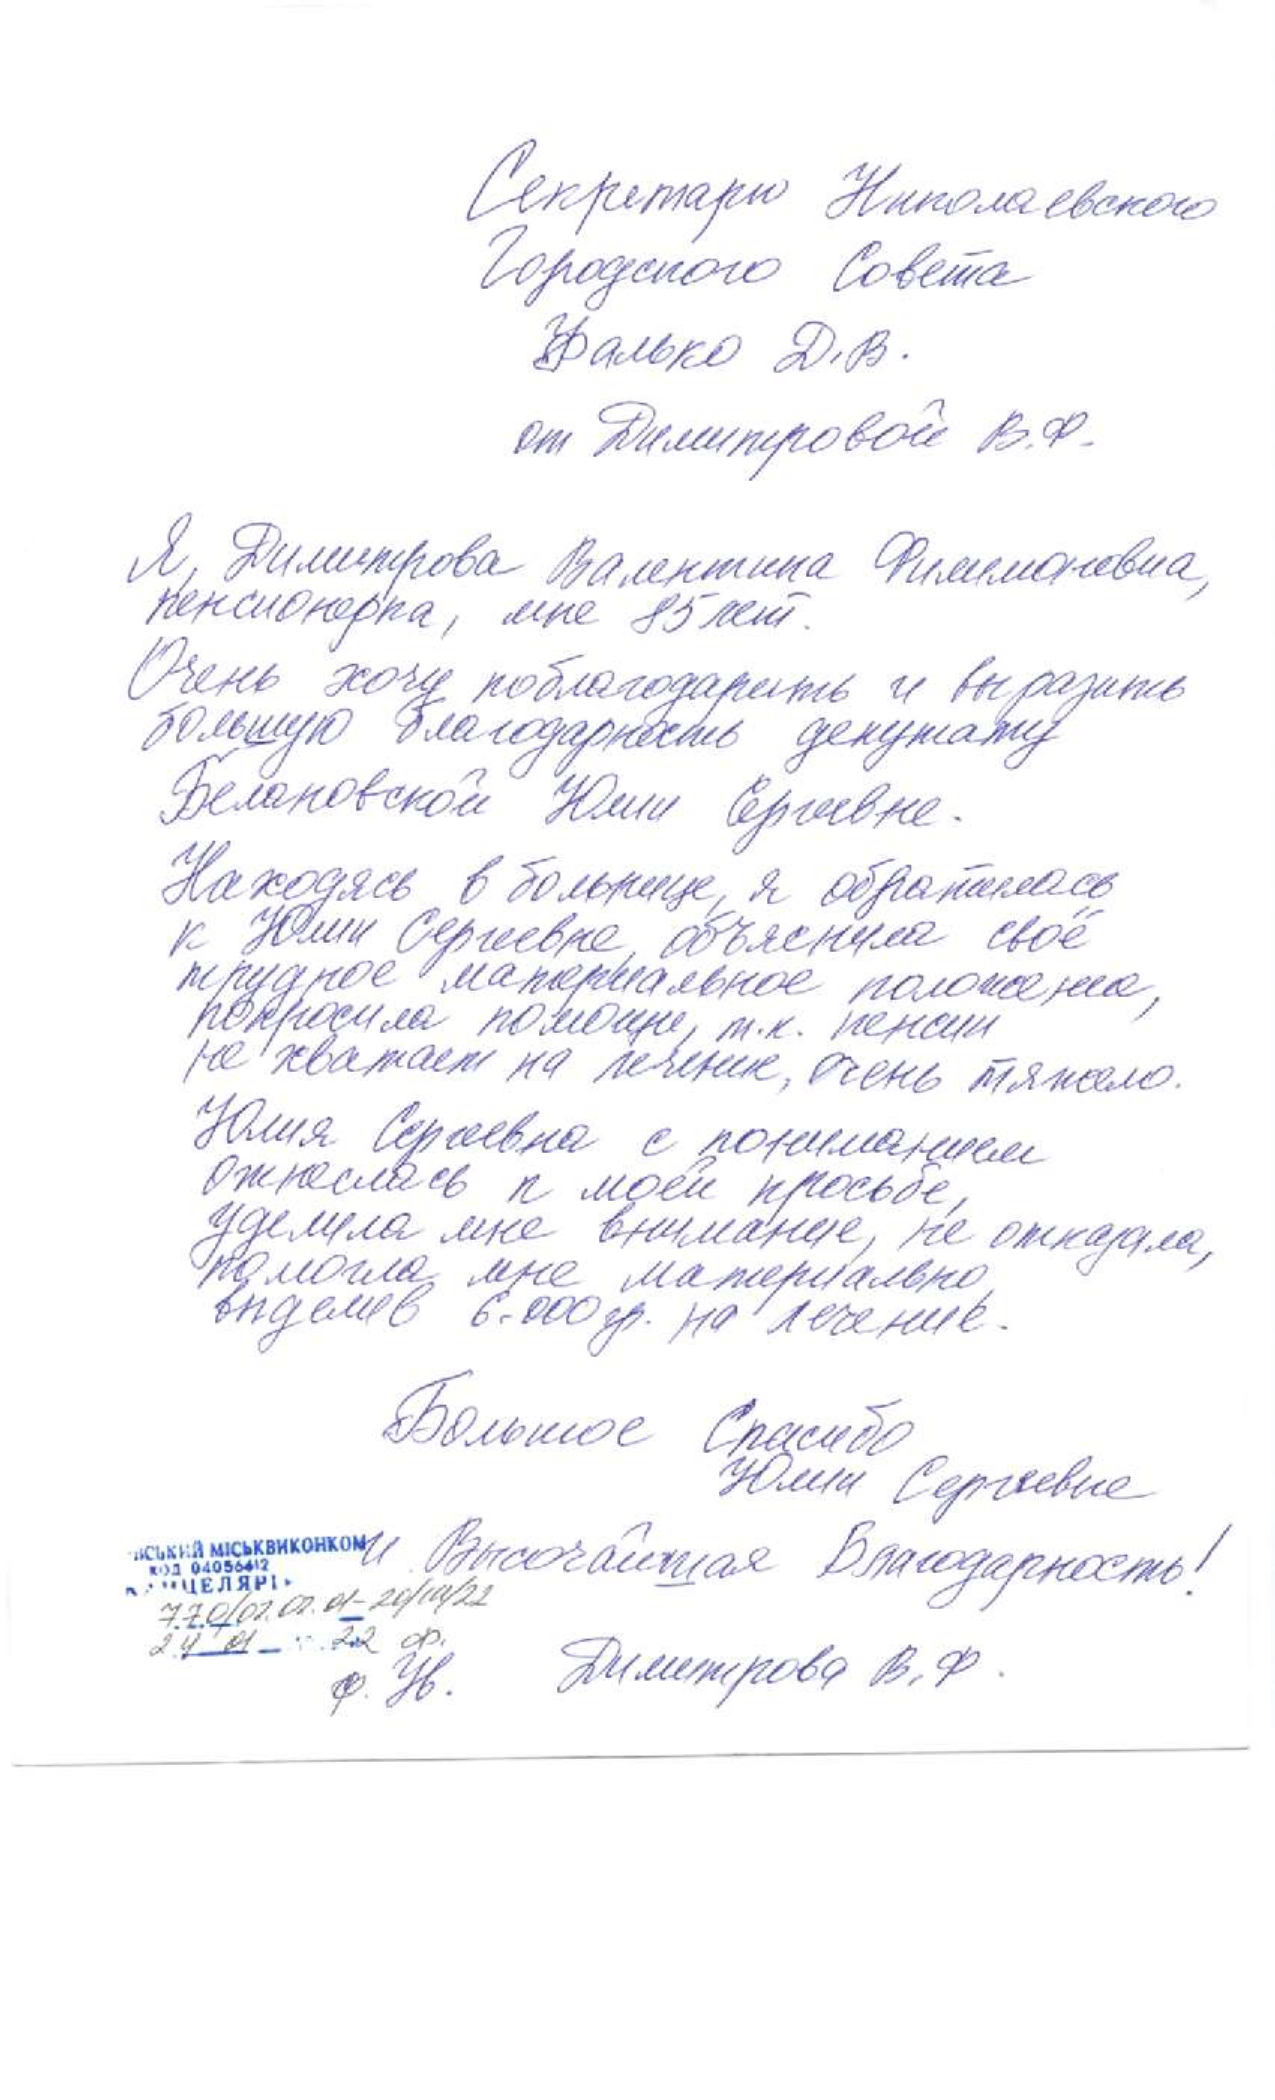 Секретарю Николаевского
Городского Совета
Фалько Д.В.
от Димитровой В.Ф.
Я, Димитрова Валентина Филимоновна,
пенсионерка, мне 85 лет.
Очень хочу поблагодарить и выразить
большую благодарность депутату
Белановской Юлии Сергеевне.
Находясь в больнице, я обратилась
к Юлии Сергеевне, объяснила своё
трудное материальное положение,
попросила помощи, т.к. пенсии
не хватает на лечение, очень тяжело.
Юлия Сергеевна с пониманием
отнеслась к моей просьбе,
уделила мне внимание, не отказала,
помогла мне материально,
выделив 6.000 гр. на лечение.
Большое Спасибо
Юлии Сергеевне
и Высочайшая Благодарность!
ВСЬКИЙ МІСЬКВИКОНКОМ
КОД 04056612
ЦЕЛЯРІ
770/02.02.01-20/14/22
24 01 22 ф.
Димитрова В.Ф.